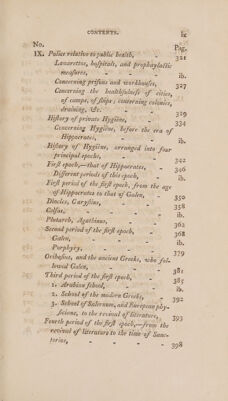 CONTENTS. ix
No. Pag.
IX. Police relative to public health, - 321
Lazarettos, hospitals, and prophylactic
measures, - - - ib.
Concerning prisons and workhouses, 327
Concerning the healthfulness of cities,
of camps, of ships; concerning colonies,
draining, &c. - - - 329
History of private Hygiène, - 334
Concerning Hygiène, before the era of
Hippocrates, - - - ib.
History of Hygiène, arranged into four
principal epochs, - - - 342
First epoch,—that of Hippocrates, - 346
Different periods of this epoch, - ib.
First period of the first epoch, from the age
of Hippocrates to that of Galen, - 350
Diocles, Carystius, - - - 358
Celsus, - - - - ib.
Plutarch, Agathinus, - - 362
Second period of the first epoch, - 368
Galen, - - - - ib.
Porphyry, - - - 379
Oribasius, and the ancient Greeks, who fol-
lowed Galen, - - - 381
Third period of the first epoch, - 385
1. Arabian school, - - - ib.
2. School of the modern Greeks, - 392
3. School of Salernum, and European phy-
sicians, to the revival of literature, 393
Fourth period of the first epoch,—from the
revival of literature to the time of Sanc-
torius, - - - - 398